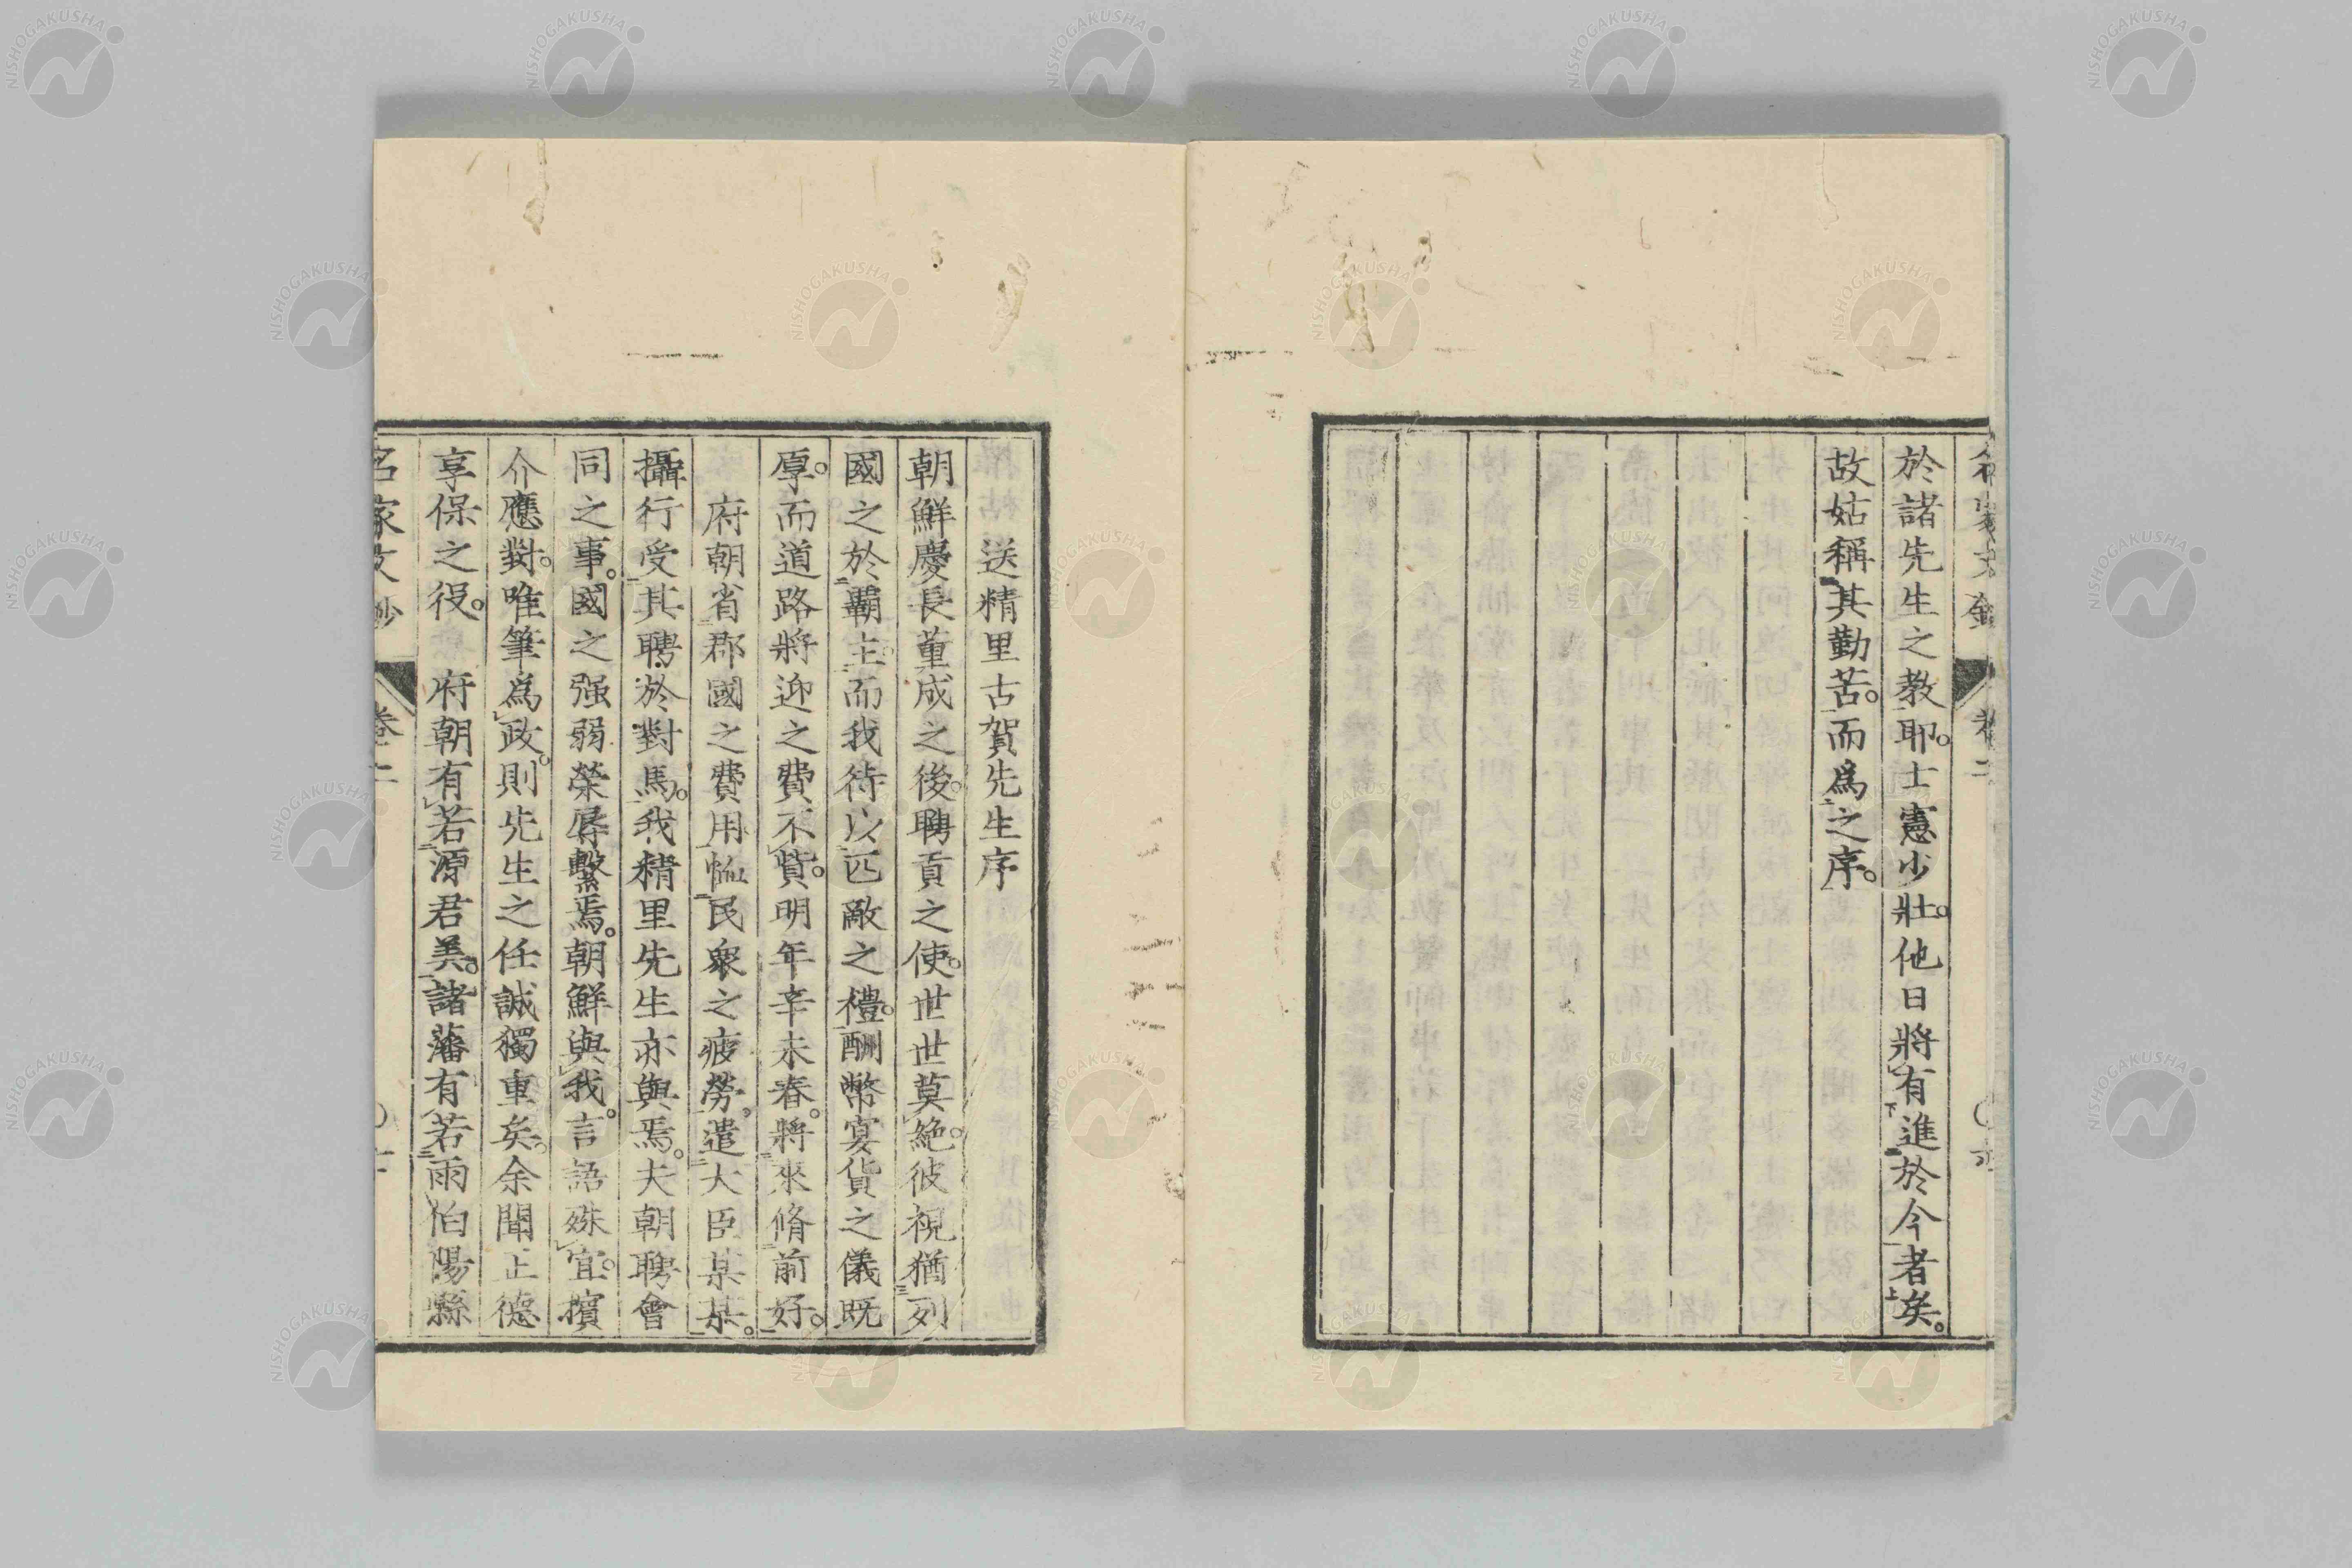 於諸先生之教耶。士憲少壯。他日將有進於今者矣。
故姑稱其勤苦。而爲之序。
送精里古賀先生序
朝鮮慶長萱成之後。聘貢之使。世世莫絶。彼視猶列
國之於霸主。而我待以匹敵之禮。酬幣宴貨之儀既
厚。而道路將迎之費不貲。明年辛未春。將來脩前好。
府朝省郡國之費用恤民衆之疲勞。遣大臣某某。
攝行受其聘於對馬。我精里先生亦與焉。夫朝聘會
同之事。國之强弱榮辱繫焉。朝鮮與我。言語殊宜。擯
介應對。唯筆爲政。則先生之任誠獨重矣。余聞正德
享保之役。府朝有若源君美。諸藩有若雨伯陽縣
名家文抄 卷二
NISHOGAKUSHA